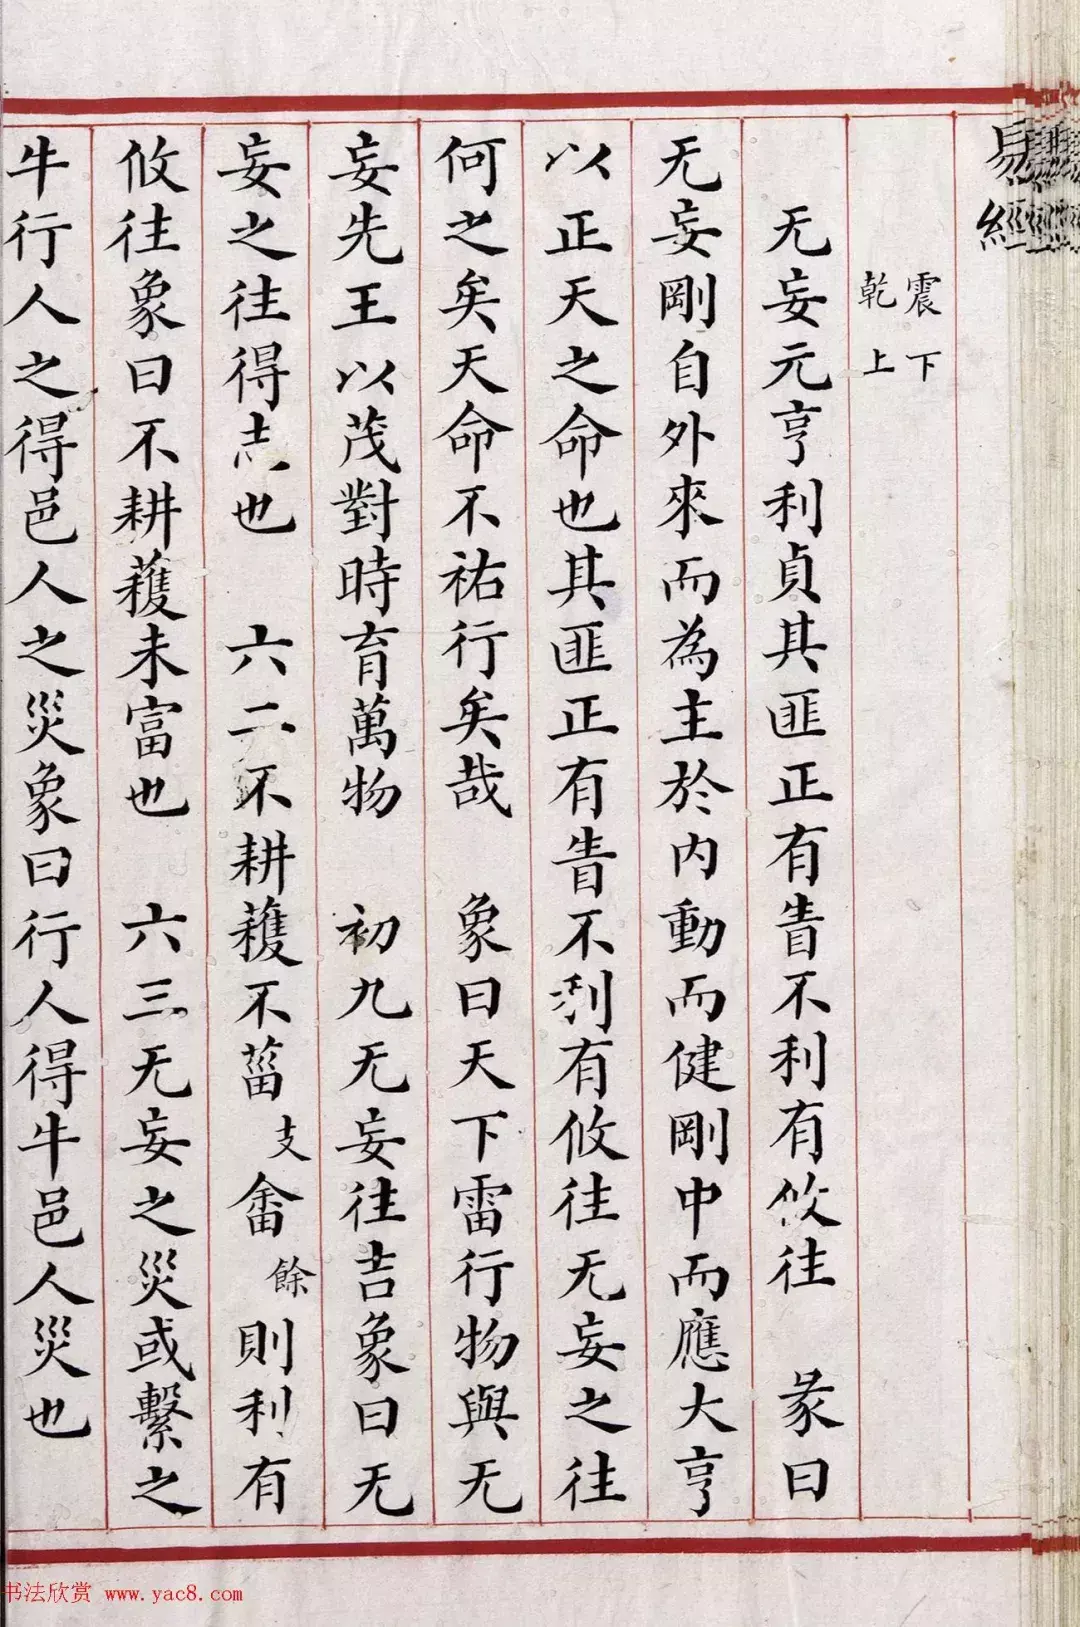 易經
震下
乾上
无妄元亨利貞其匪正有眚不利有攸往　彖曰
无妄剛自外來而為主於內動而健剛中而應大亨
以正天之命也其匪正有眚不利有攸往无妄之往
何之矣天命不祐行矣哉　象曰天下雷行物與无
妄先王以茂對時育萬物　初九无妄往吉象曰无
妄之往得志也　六二不耕穫不菑支畬餘則利有
攸往象曰不耕穫未富也　六三无妄之災或繫之
牛行人之得邑人之災象曰行人得牛邑人災也
书法欣赏 www.yac8.com